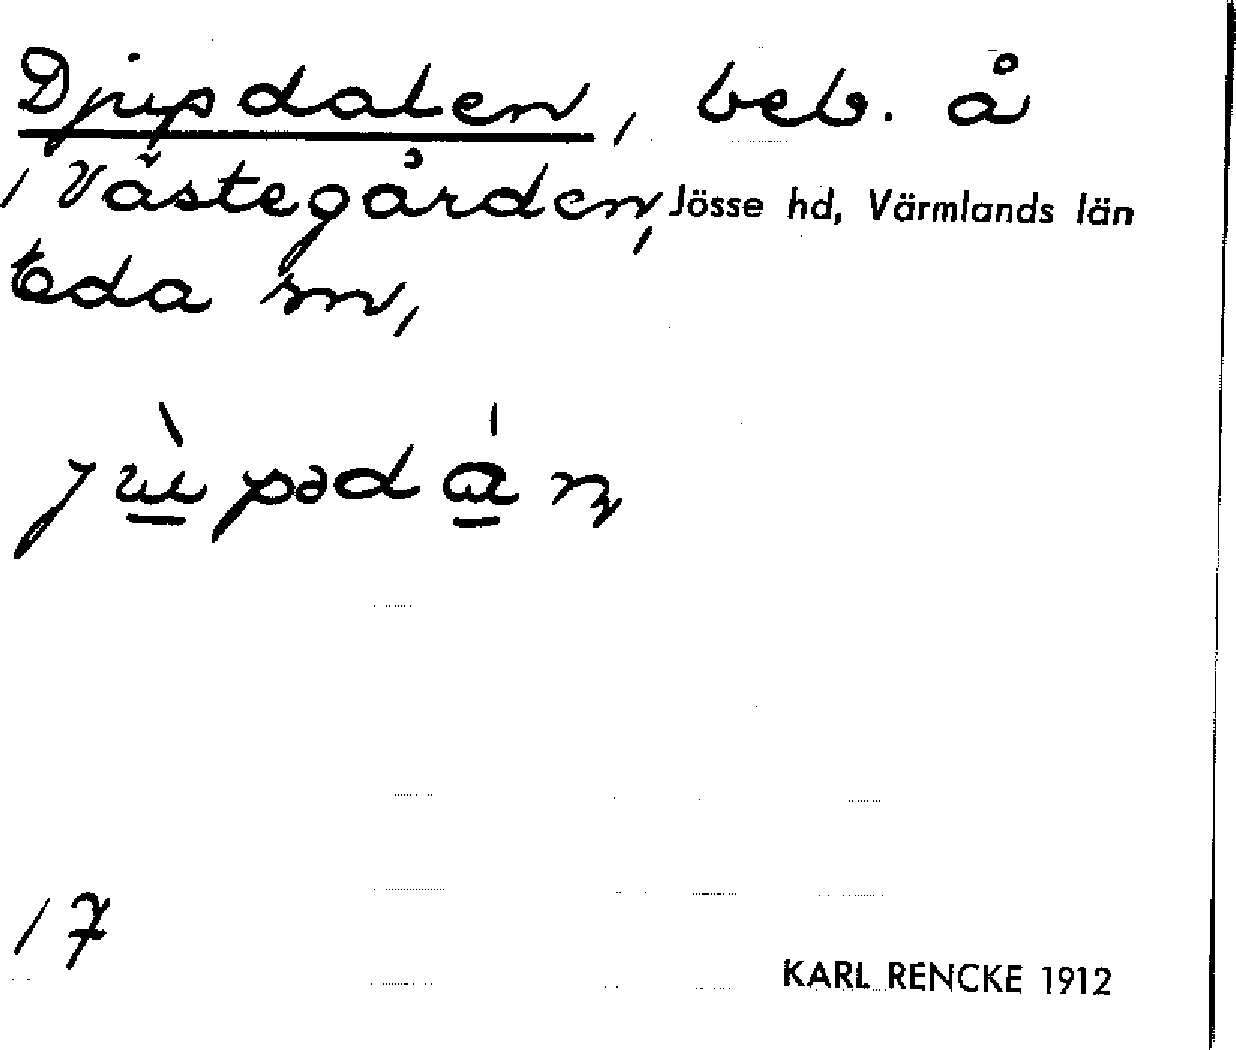 Djupdalen, beb. å
1 Västegården, Jösse hd, Värmlands län
Eda sn,
jùpədán
17
KARL RENCKE 1912